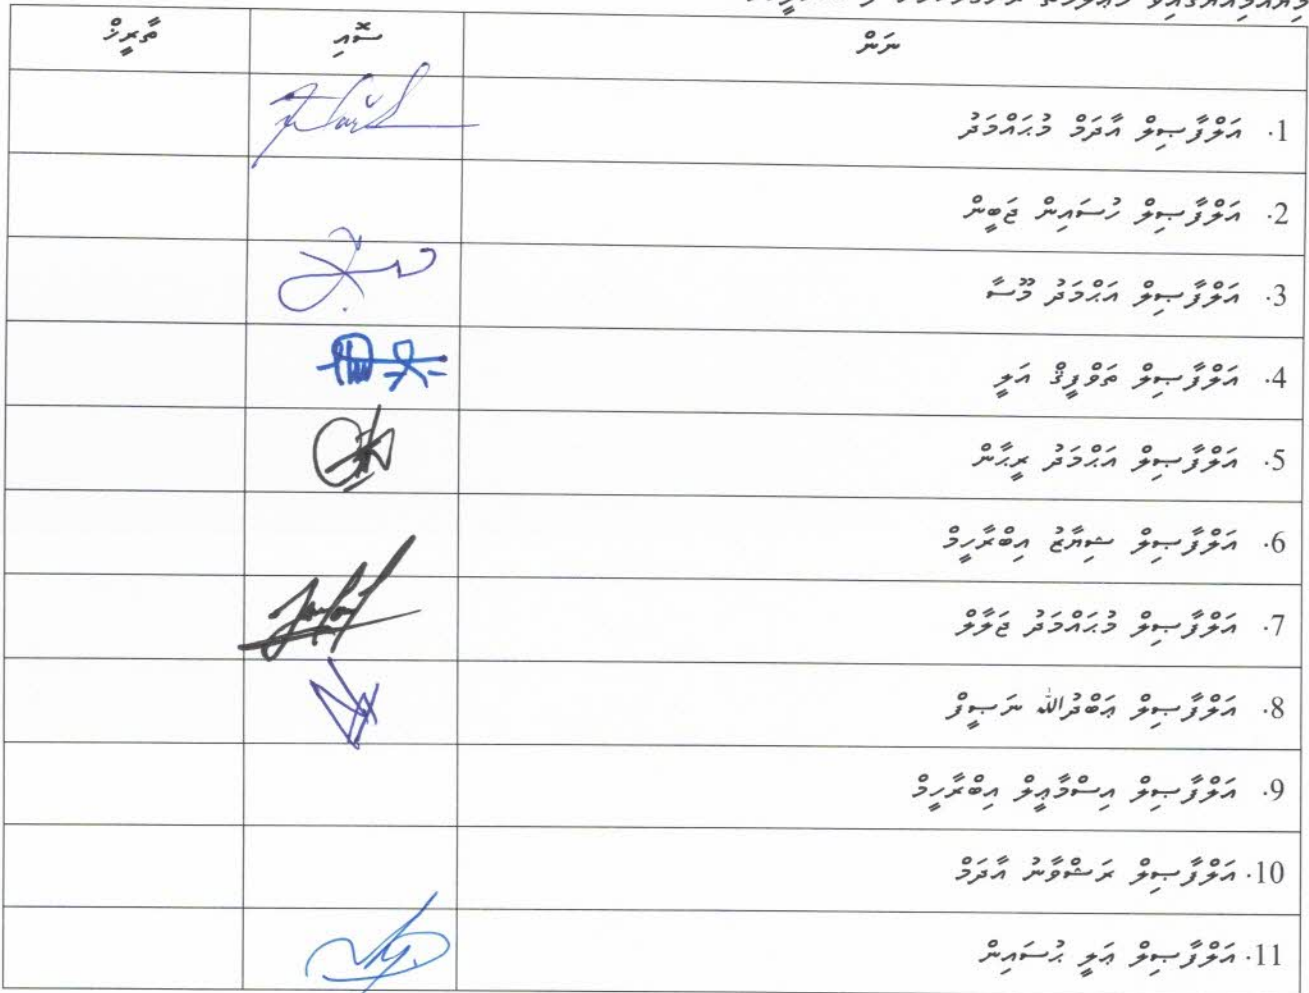 ނަން ސޮއި ތާރީޚް
1. އަލްފާޟިލް އާދަމް މުޙައްމަދު
2. އަލްފާޟިލް ހުސައިން ޖަބީން
3. އަލްފާޟިލް އަޙްމަދު މޫސާ
4. އަލްފާޟިލް ތަވްފީޤް އަލީ
5. އަލްފާޟިލް އަޙްމަދު ރީޙާން
6. އަލްފާޟިލް ޝިޔާޒު އިބްރާހީމް
7. އަލްފާޟިލް މުޙައްމަދު ޖަލާލް
8. އަލްފާޟިލް ޢަބްދުﷲ ނަޞީފް
9. އަލްފާޟިލް އިސްމާޢީލް އިބްރާހީމް
10. އަލްފާޟިލް ރަޝްވާނު އާދަމް
11. އަލްފާޟިލް ޢަލީ ޙުސައިން